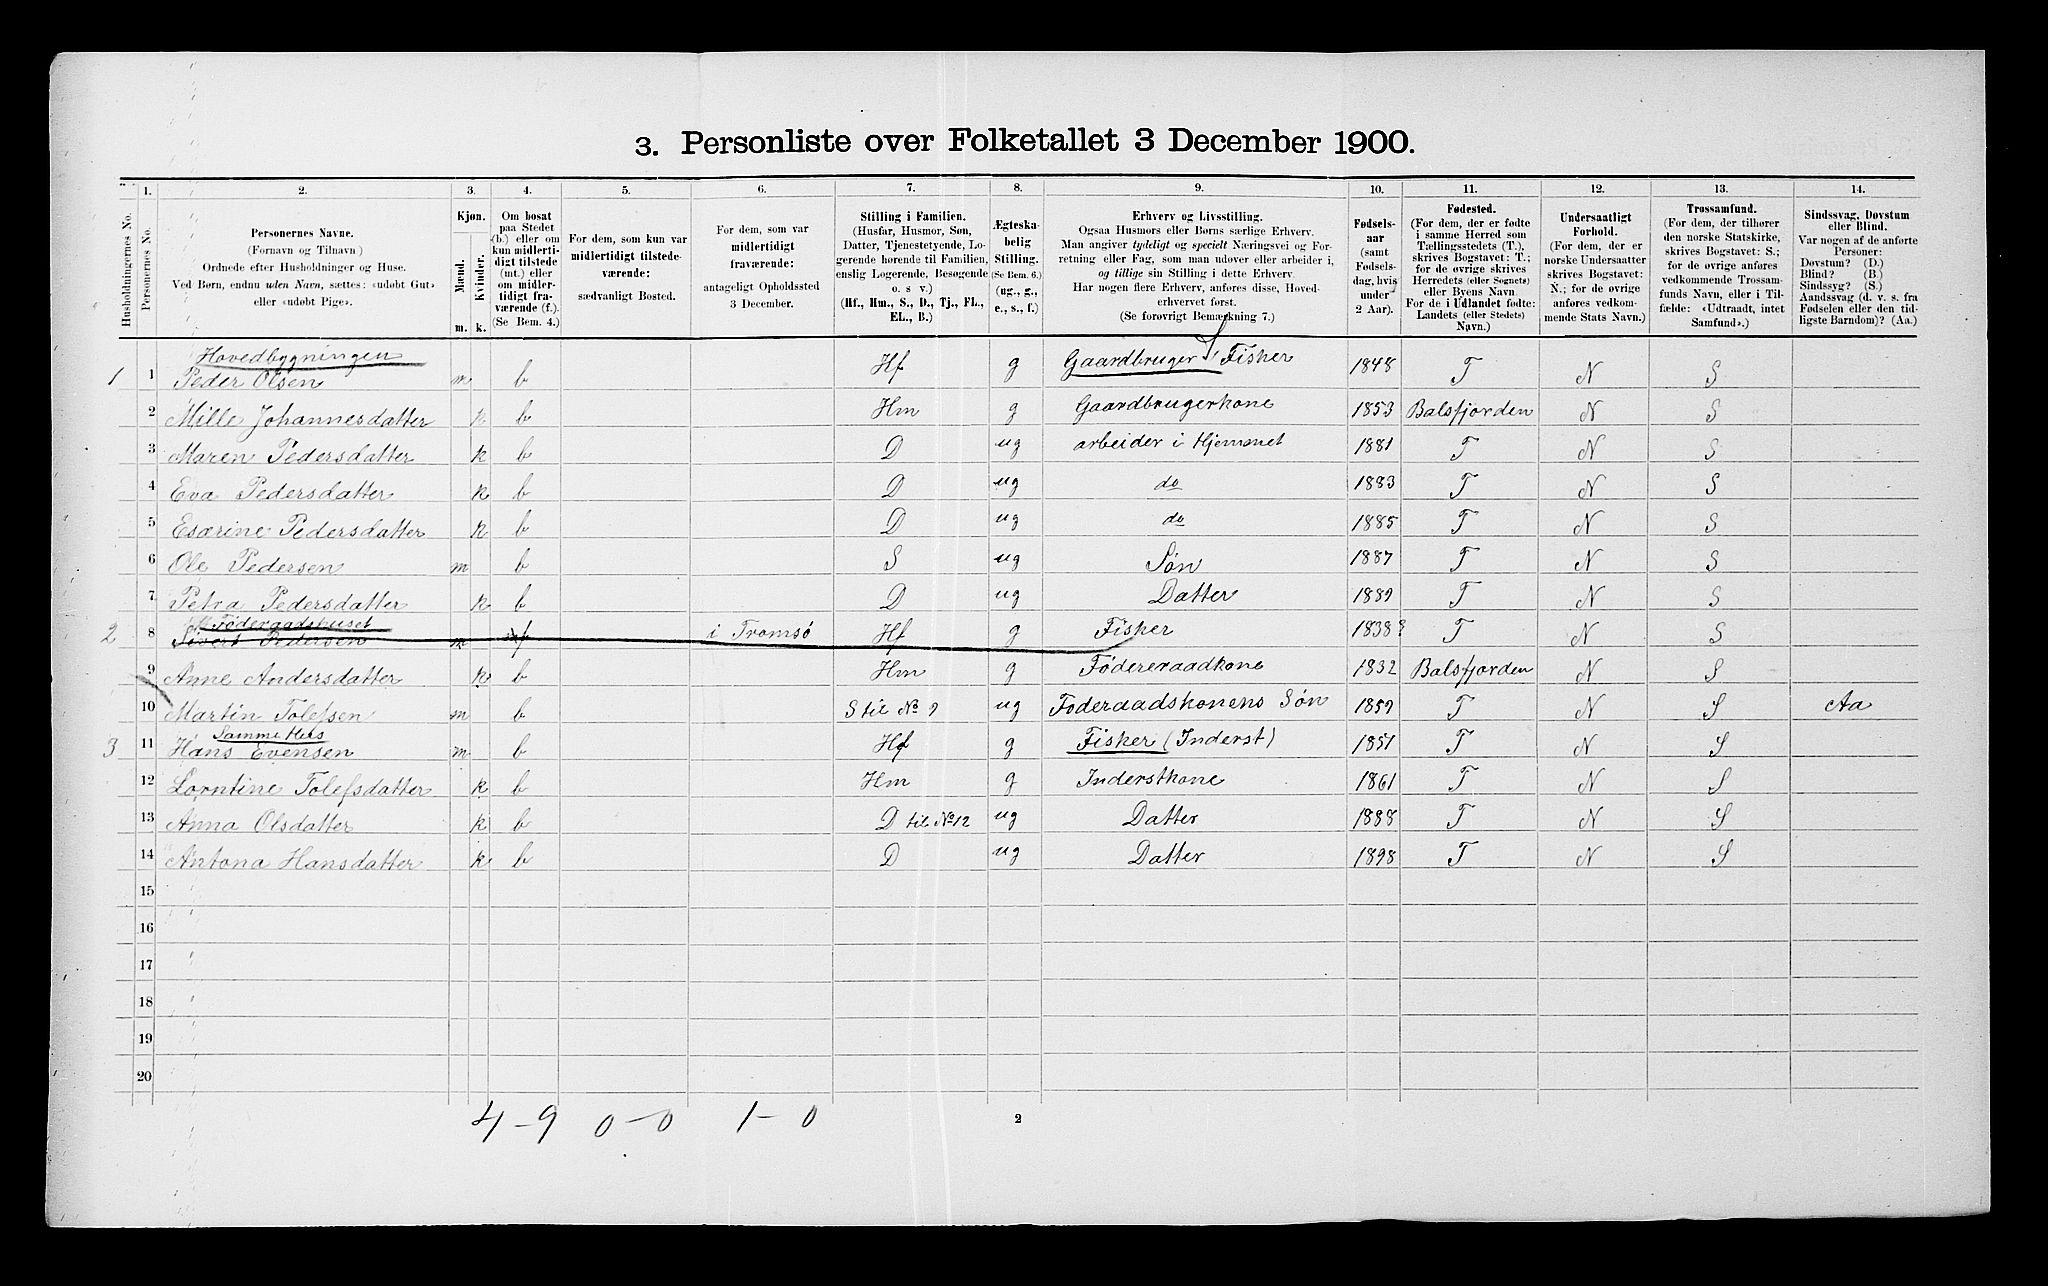 3. Personliste over Folketallet 3 December 1900.
Husholdningernes No.
1. Personernes No.
2. Personernes Navne. (Fornavn og Tilnavn) Ordnede efter Husholdninger og Huse. Ved Børn, endnu uden Navn, sættes: «udøbt Gut» eller «udøbt Pige».
3. Kjøn. Mænd. m. Kvinder. k.
4. Om bosat paa Stedet (b.) eller om kun midlertidigt tilstede (mt.) eller om midlertidigt fraværende (f.). (Se Bem. 4.)
5. For dem, som kun var midlertidigt tilstedeværende: sædvanligt Bosted.
6. For dem, som var midlertidigt fraværende: antageligt Opholdssted 3 December.
7. Stilling i Familien. (Husfar, Husmor, Søn, Datter, Tjenestetyende, Logerende hørende til Familien, enslig Logerende, Besøgende o. s v.) (Hf., Hm., S., D., Tj., FL., EL., B.)
8. Ægteskabelig Stilling. (Se Bem. 6.) (ug., g., e., s., f.)
9. Erhverv og Livsstilling. Ogsaa Husmors eller Børns særlige Erhverv. Man angiver tydeligt og specielt Næringsvei og Forretning eller Fag, som man udøver eller arbeider i, og tillige sin Stilling i dette Erhverv. Har nogen flere Erhverv, anføres disse, Hovederhvervet først. (Se forøvrigt Bemærkning 7.)
10. Fødselsaar (samt Fødselsdag, hvis under 2 Aar).
11. Fødested. (For dem, der er fødte i samme Herred som Tællingsstedets (T.), skrives Bogstavet: T.; for de øvrige skrives Herredets (eller Sognets) eller Byens Navn. For de i Udlandet fødte: Landets (eller Stedets) Navn.)
12. Undersaatligt Forhold. (For dem, der er norske Undersaatter skrives Bogstavet: N.; for de øvrige anføres vedkommende Stats Navn.)
13. Trossamfund. (For dem, der tilhører den norske Statskirke, skrives Bogstavet: S.; for de øvrige anføres vedkommende Trossamfunds Navn, eller i Tilfælde: «Udtraadt, intet Samfund».)
14. Sindssvag, Døvstum eller Blind. Var nogen af de anførte Personer: Døvstum? (D.) Blind? (B.) Sindssyg? (S.) Aandssvag (d. v. s. fra Fødselen eller den tidligste Barndom)? (Aa.)
Hovedbygningen
1 1 Peder Olsen m b Hf g Gaardbruger S, Fisker 1848 T N S
2 Mille Johannesdatter k b Hm g Gaardbrugerkone 1853 Balsfjorden N S
3 Maren Pedersdatter k b D ug arbeider i Hjemmet 1881 T N S
4 Eva Pedersdatter k b D ug do 1883 T N S
5 Esærine Pedersdatter k b D ug do 1885 T N S
6 Ole Pedersen m b S ug Søn 1887 T N S
7 Petra Pedersdatter k b D ug Datter 1889 T N S
Føderaadshuset
2 8 Sivert Pedersen m f i Tromsø Hf g Fisker 1838? T N S
9 Anne Andersdatter k b Hm g Födereraadkone 1832 Balsfjorden N S
10 Martin Tolefsen m b S til No 9 ug Foderaadskonens Søn 1859 T N S Aa
Samme Hus
3 11 Hans Evensen m b Hf g Fisker (Inderst) 1851 T N S
12 Lorntine Tolefsdatter k b Hm g Inderstkone 1861 T N S
13 Anna Olsdatter k b D til No 12 ug Datter 1888 T N S
14 Antona Hansdatter k b D ug Datter 1898 T N S
15
16
17
18
19
20
4-9 0-0 1-0
2